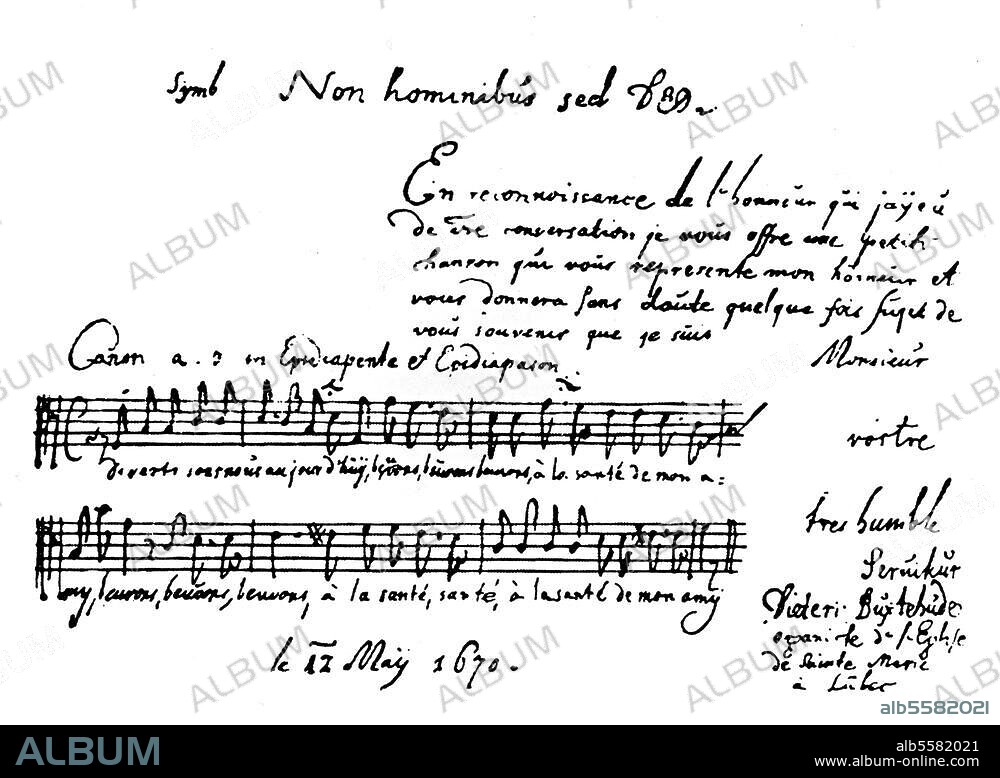 Symb Non hominibus sed Deo
En reconnoissance de l'honneur qui jay eu
de vre conversation je vous offre une petite
chanson qui vous represente mon honneur et
vous donnera sans doute quelque fois sujet de
vous souvenir que je suis
Monsieur
Canon a. 3 in Epidiapente et Epidiapason.
vostre
divertisons nous aujour d'hüÿ, beuvons, beuvons beuvons, à la santé de mon a=
tres humble
my, beuvons, beuvons, beuvons, à la santé, santé, à la santé de mon amÿ
Serviteur
Dieteri. Buxtehude
organiste de l'Eglise
de Sainte Marie
à Lubec
le 12 Maÿ 1670.
ALBUM
alb5582021
ALBUM
alb5582021
www.album-online.com